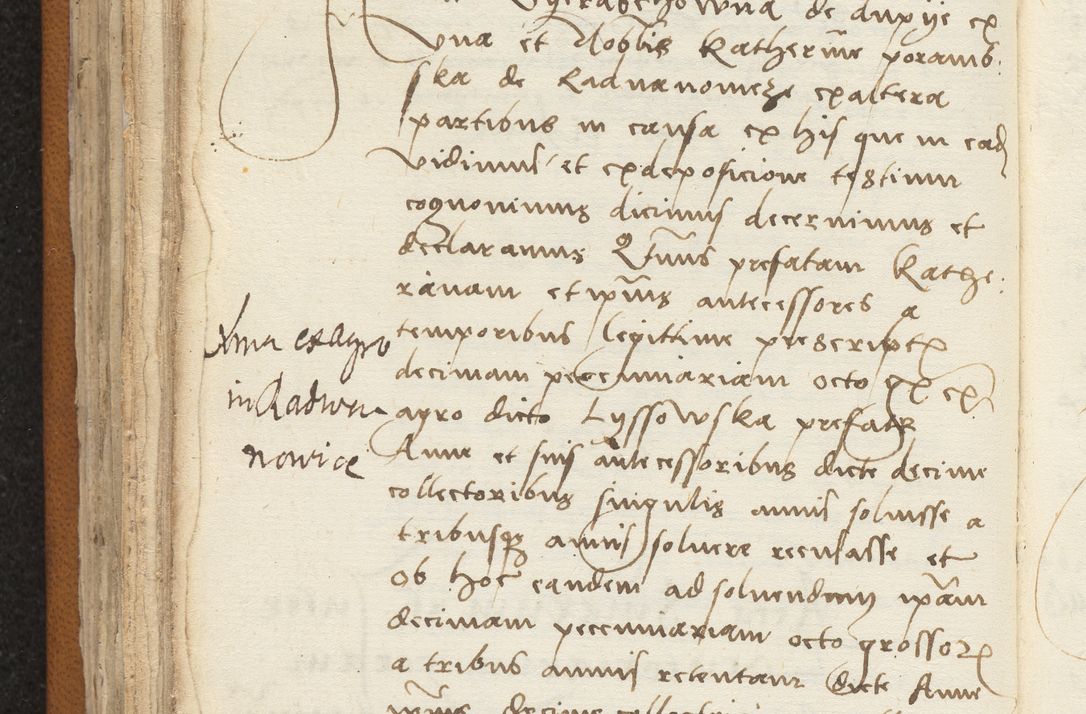 de dupije ex
vna et Noblis Katherine poramb:
ska de Radwanowicze exaltera
partibus in causa ex his que in ead
vidimus et exdepositione testium
cognovimus dicimus decernimus et
declaramus Qmus prefatam Kathe:
rinam et ipius antecessores a
temporibus legittime prescriptis
decimam pecuniariam octo gr ex
agro dicto Lyssowska prefate
Anne et suis antecessoribus dicte decime
collectoribus singulis annis solvisse a
tribusque annis solvere recusasse et
ob hoc eandem ad solvendum ipam
decimam pecuniariam octo grossor
a tribus annis retentam dicte Anne
decime
Xma ex agro
in Radwa
nowice